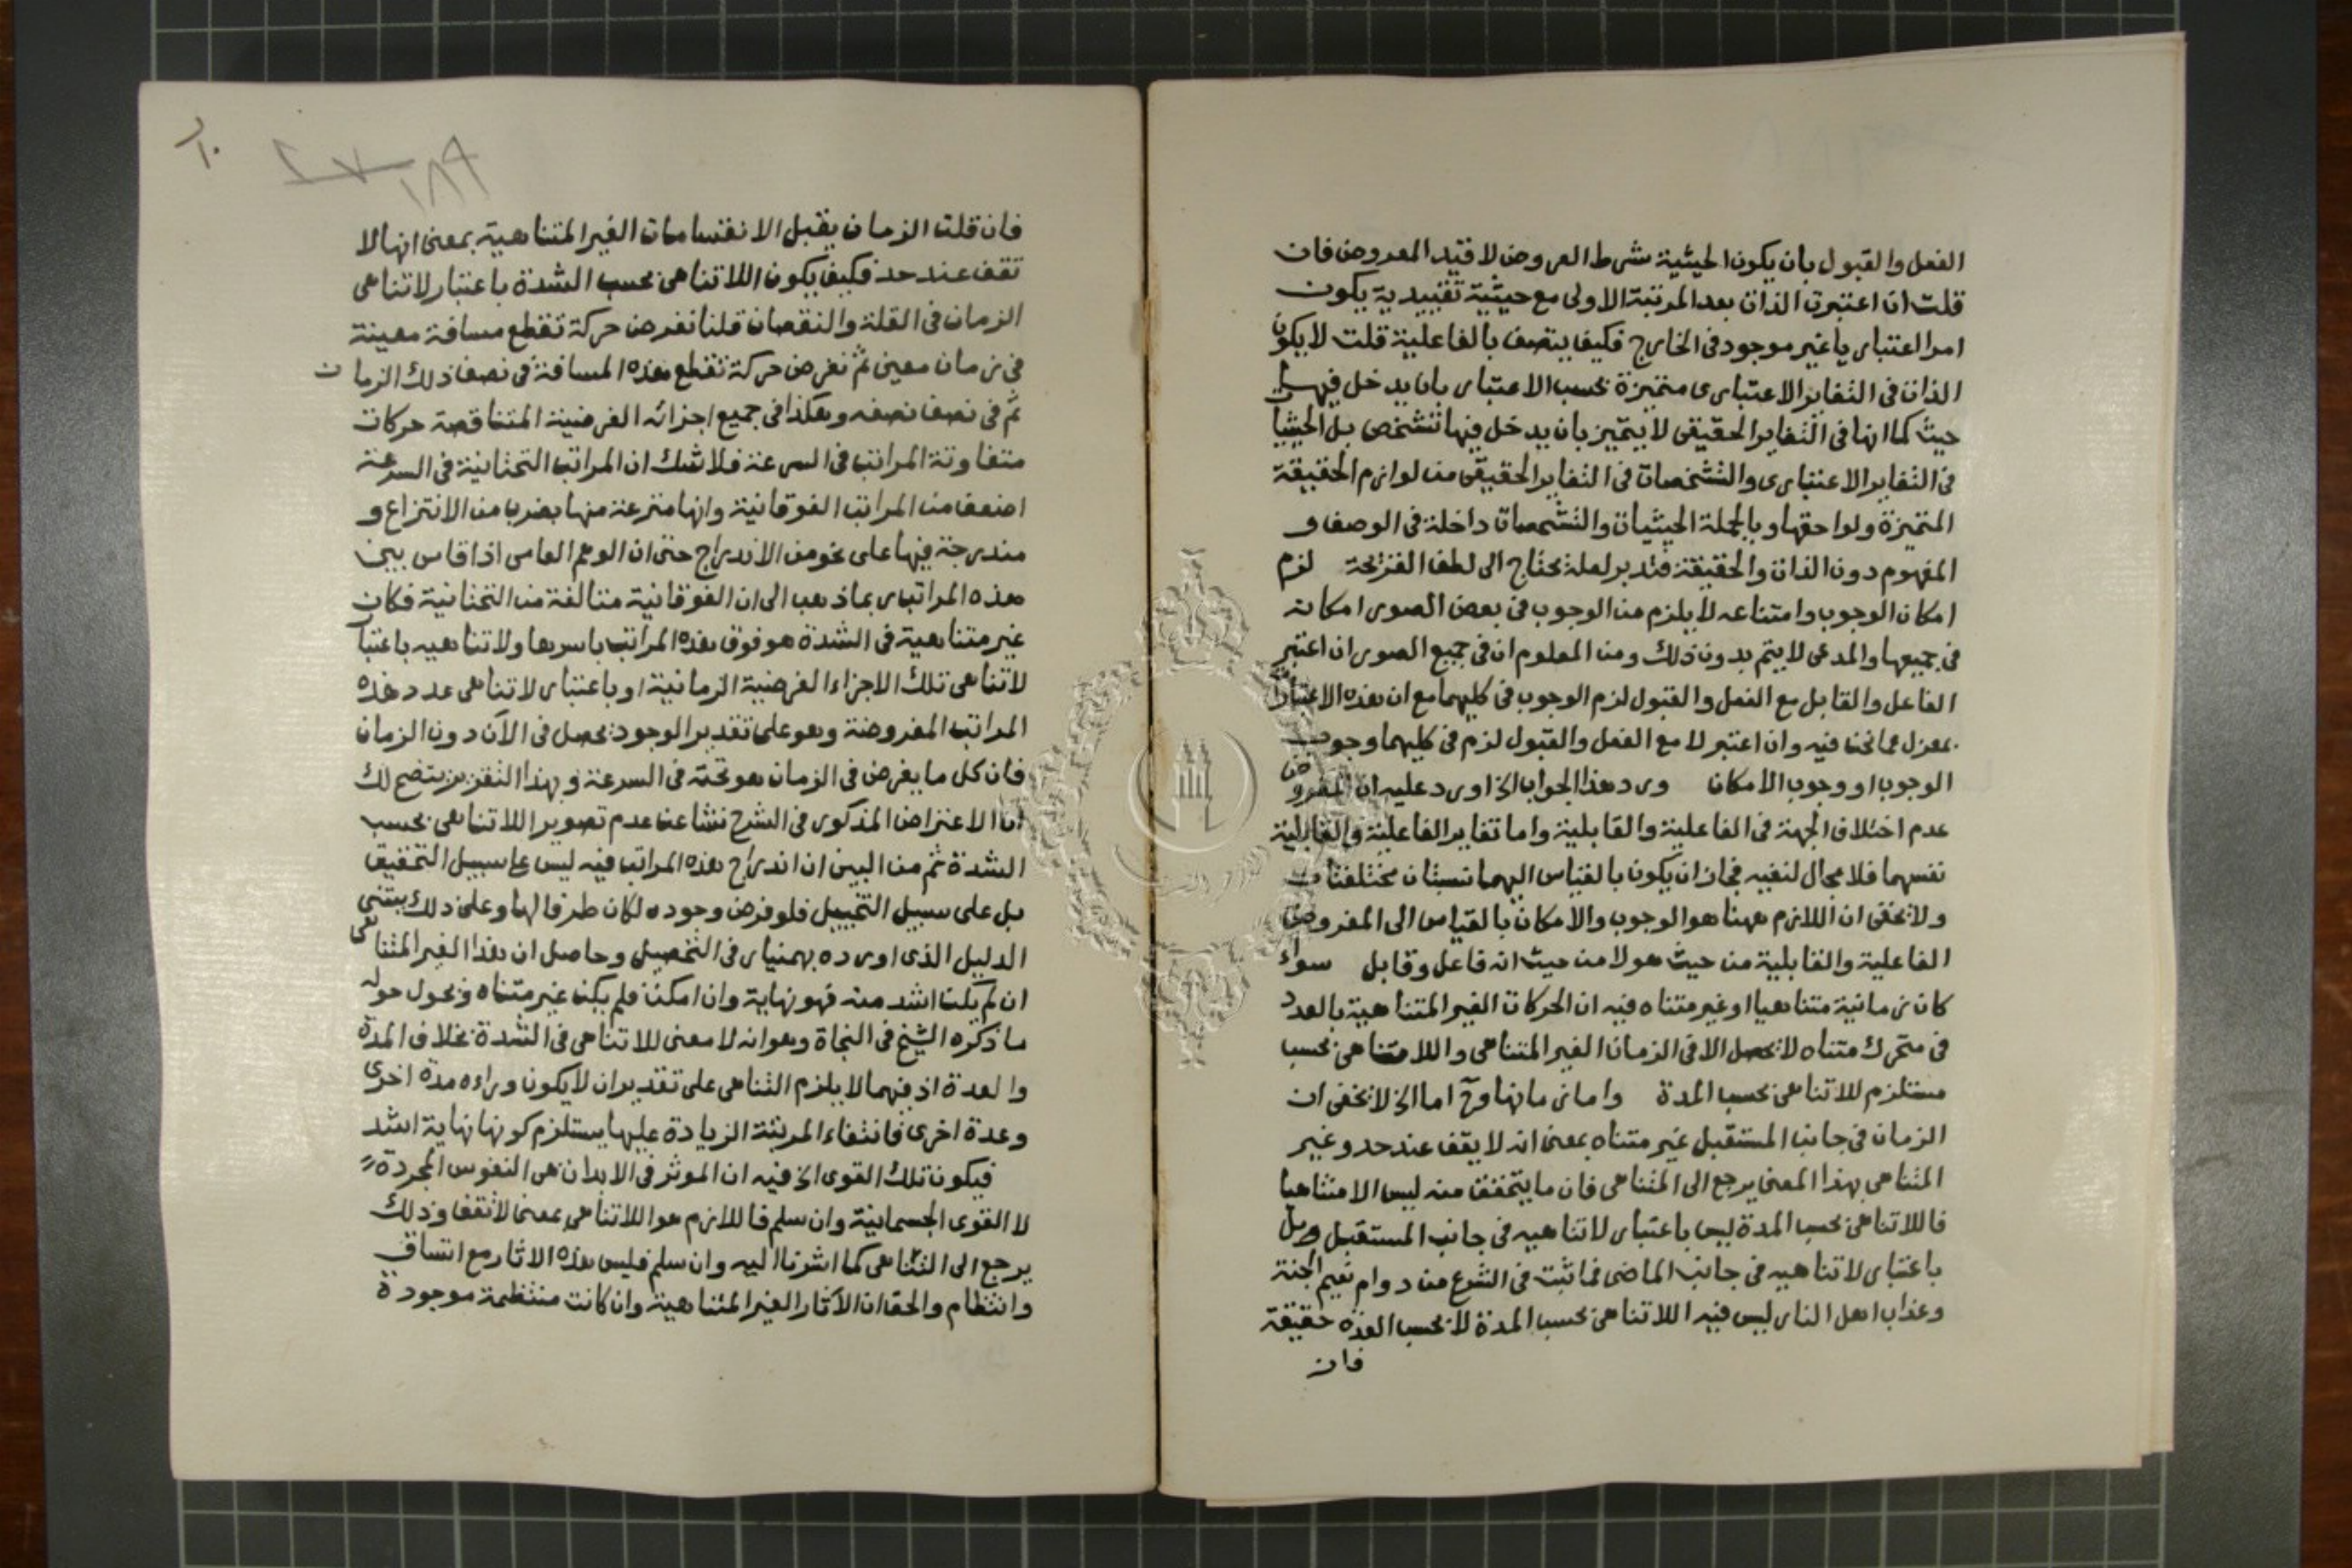 الفعل والقبول بان يكون الحيثية شرط العروض لا قيد المعروض فان
قلت ان اعتبرت الذات بعد المرتبة الاولى مع حيثية تقييدية يكون
امرا اعتباريا غير موجود فى الخارج فكيف يتصف بالفاعلية قلت لا يكون
الذات فى التغاير الاعتبارى متميزة بحسب الاعتبار بان يدخل فيها
حيث كما انها فى التغاير الحقيقى لا يتميز بان يدخل فيها تشخص بل الحيثيا
فى التغاير الاعتبارى والتشخصات فى التغاير الحقيقى من لوازم الحقيقة
المتميزة ولواحقها وبالجملة الحيثيات والتشخصات داخلة فى الوصف و
المفهوم دون الذات والحقيقة فتدبر لعله يحتاج الى لطف القريحة لزم
امكان الوجوب وامتناعه لا يلزم من الوجوب فى بعض الصور امكانه
فى جميعها والمدعى لا يتم بدون ذلك ومن المعلوم ان فى جميع الصور ان اعتبر
الفاعل والقابل مع الفعل والقبول لزم الوجوب فى كليهما مع ان هذه الاعتبار
بمعزل عما نحن فيه وان اعتبر لا مع الفعل والقبول لزم فى كليهما وجوب
الوجوب او وجوب الامكان ورد هذا الجواب الخ اورد عليه ان المفروض
عدم اختلاف الجهة فى الفاعلية والقابلية واما تغاير الفاعلية والقابلية
نفسهما فلا مجال لنفيه فجاز ان يكون بالقياس اليهما نسبتان مختلفتان
ولا يخفى ان اللازم ههنا هو الوجوب والامكان بالقياس الى المفروض
الفاعلية والقابلية من حيث هو لا من حيث انه فاعل وقابل سواء
كان زمانية متناهيا او غير متناه فيه ان الحركات الغير المتناهية بالعدد
فى متحرك متناه لا يحصل الا فى الزمان الغير المتناهى واللا متناهى بحسب
مستلزم للاتناهى بحسب المدة واما زمانها وح اما الخ لا يخفى ان
الزمان فى جانب المستقبل غير متناه بمعنى انه لا يقف عند حد وغير
المتناهى بهذا المعنى يرجع الى المتناهى فان ما يتحقق منه ليس الا متناهيا
فاللاتناهى بحسب المدة ليس باعتبار لاتناهيه فى جانب المستقبل وبل
باعتبار لاتناهيه فى جانب الماضى فما اثبت فى الشرع من دوام نعيم الجنة
وعذاب اهل النار ليس فيه اللاتناهى بحسب المدة لا بحسب العدة حقيقة
فان
١٨٩
فان قلت الزمان يقبل الانقسامات الغير المتناهية بمعنى انها لا
تقف عند حد فكيف يكون اللاتناهى بحسب الشدة باعتبار لاتناهى
الزمان فى القلة والنقصان قلنا نفرض حركة تقطع مسافة معينة
فى زمان معين ثم نفرض حركة تقطع هذه المسافة فى نصف ذلك الزمان
ثم فى نصف نصفه وهكذا فى جميع اجزائه الفرضية المتناقصة حركات
متفاوتة المراتب فى السرعة فلا شك ان المراتب التحتانية فى السرعة
اضعف من المراتب الفوقانية وانها منتزعة منها بضرب من الانتزاع و
مندرجة فيها على نحو من الاندراج حتى ان الوهم العامى اذا قاس بين
هذه المراتب ربما ذهب الى ان الفوقانية متالفة من التحتانية فكان
غير متناهية فى الشدة هو فوق هذه المراتب باسرها ولاتناهيه باعتبا
لاتناهى تلك الاجزاء الفرضية الزمانية او باعتبار لاتناهى عدد هذه
المراتب المفروضة وهو على تقدير الوجود يحصل فى الآن دون الزمان
فان كل ما يفرض فى الزمان هو تحته فى السرعة وبهذا التقرير يتضح لك
ان الاعتراض المذكور فى الشرح نشا عن عدم تصوير اللاتناهى بحسب
الشدة ثم من البين ان اندراج هذه المراتب فيه ليس على سبيل التحقيق
بل على سبيل التخييل فلو فرض وجوده لكان طرفا لها وعلى ذلك يبتنى
الدليل الذى اورده بهمنيار فى التحصيل وحاصل ان هذا الغير المتناهى
ان لم يكن اشد منه فهو نهاية وان امكن فلم يكن غير متناه ويحول حوله
ما ذكره الشيخ فى النجاة وهو انه لا معنى للاتناهى فى الشدة بخلاف المدة
والعدة اذ فيهما لا يلزم التناهى على تقدير ان لا يكون وراءه مدة اخرى
وعدة اخرى فانتفاء المرتبة الزيادة عليها يستلزم كونها نهاية اشد
فيكون تلك القوى الخ فيه ان الموثر فى الابدان هى النفوس المجردة
لا القوى الجسمانية وان سلم فاللازم هو اللاتناهى بمعنى لا تقف وذلك
يرجع الى التناهى كما اشرنا اليه وان سلم فليس هذه الاثار مع اتساق
وانتظام والحق ان الآثار الغير المتناهية وان كانت منتظمة موجودة